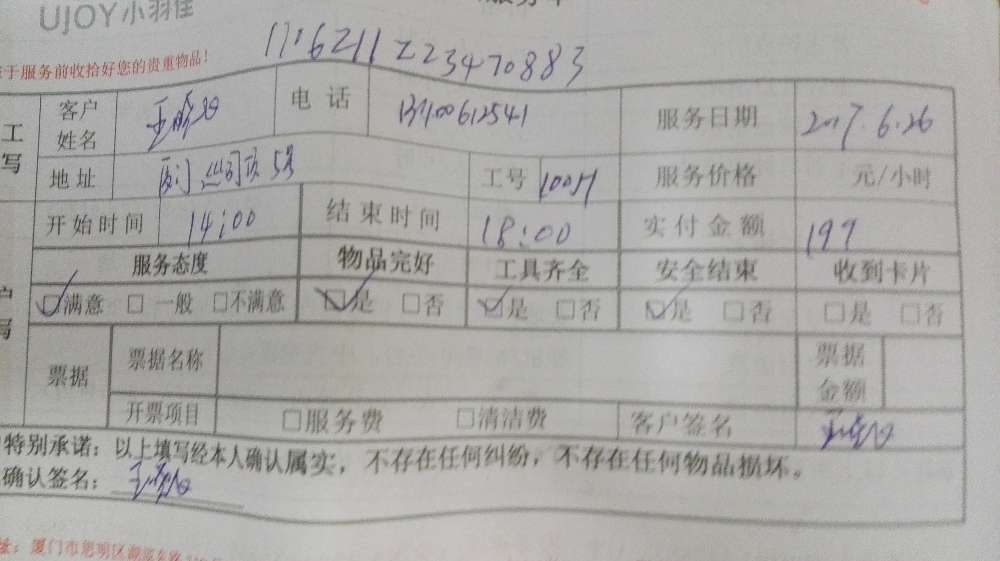 UJOY小羽佳
于服务前收拾好您的贵重物品!
17:6211223470883
工写 客户姓名 电话 13400612541 服务日期 2017.6.26
地址 5号 工号 服务价格 元/小时
开始时间 14:00 结束时间 18:00 实付金额 199
服务态度 物品完好 工具齐全 安全结束 收到卡片
☑满意 □一般 □不满意 ☑是 □否 ☑是 □否 ☑是 □否 □是 □否
票据 票据名称 票据金额
开票项目 □服务费 □清洁费 客户签名
特别承诺：以上填写经本人确认属实，不存在任何纠纷，不存在任何物品损坏。
确认签名：
厦门市思明区